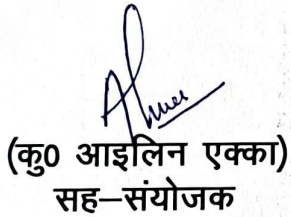 (कु0 आइलिन एक्का)
सह–संयोजक